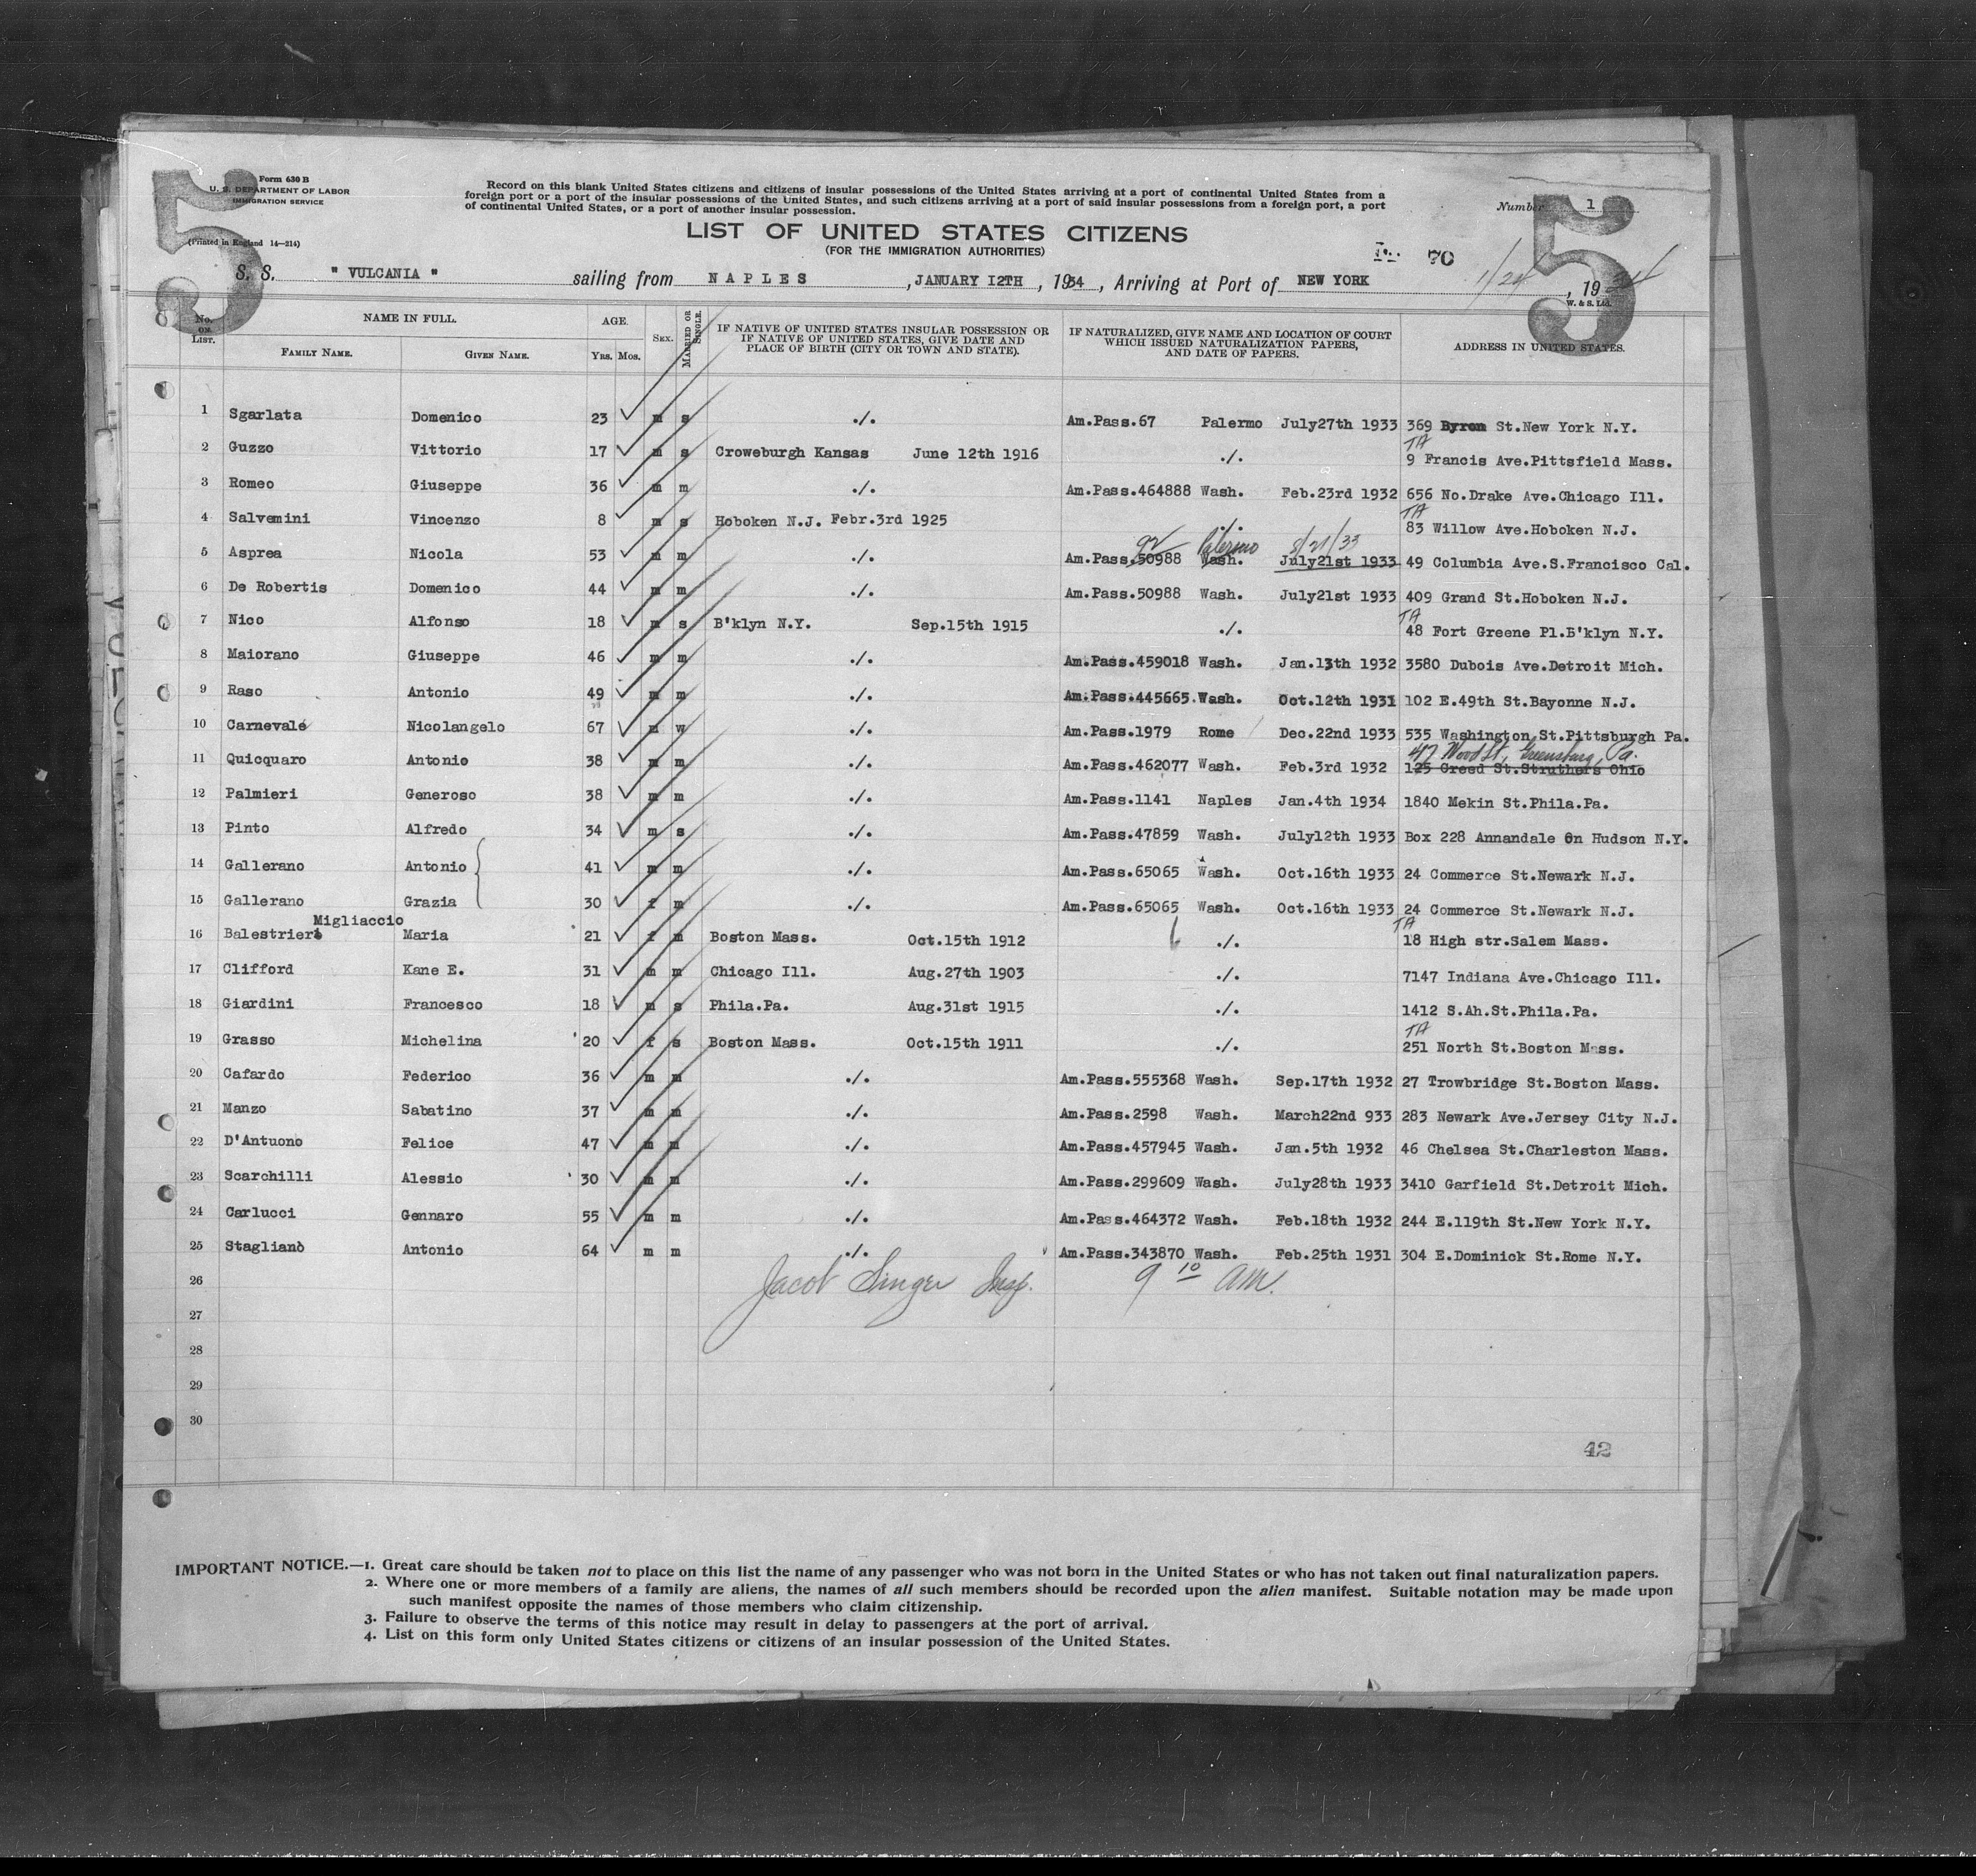 5
5
Form 630 B
U. S. DEPARTMENT OF LABOR
IMMIGRATION SERVICE
(Printed in England 14—214)
Record on this blank United States citizens and citizens of insular possessions of the United States arriving at a port of continental United States from a
foreign port or a port of the insular possessions of the United States, and such citizens arriving at a port of said insular possessions from a foreign port, a port
of continental United States, or a port of another insular possession.
Number 1
LIST OF UNITED STATES CITIZENS
(FOR THE IMMIGRATION AUTHORITIES)
70
S. S. " VULCANIA " sailing from NAPLES, JANUARY I2TH, 1934, Arriving at Port of NEW YORK 1/24, 19
W. & S. Ltd.
No. ON LIST. NAME IN FULL. AGE. SEX. MARRIED OR SINGLE. IF NATIVE OF UNITED STATES INSULAR POSSESSION OR IF NATIVE OF UNITED STATES, GIVE DATE AND PLACE OF BIRTH (CITY OR TOWN AND STATE). IF NATURALIZED, GIVE NAME AND LOCATION OF COURT WHICH ISSUED NATURALIZATION PAPERS, AND DATE OF PAPERS. ADDRESS IN UNITED STATES.
FAMILY NAME. GIVEN NAME. YRS. MOS.
1 Sgarlata Domenico 23 m s ./. Am.Pass.67 Palermo July27th 1933 369 Byron St.New York N.Y.
TA
2 Guzzo Vittorio 17 m s Croweburgh Kansas June 12th 1916 ./. 9 Francis Ave.Pittsfield Mass.
3 Romeo Giuseppe 36 m m ./. Am.Pass.464888 Wash. Feb.23rd 1932 656 No.Drake Ave.Chicago Ill.
TA
4 Salvemini Vincenzo 8 m s Hoboken N.J. Febr.3rd 1925 ./. 83 Willow Ave.Hoboken N.J.
92 Palermo 8/21/33
5 Asprea Nicola 53 m m ./. Am.Pass.50988 Wash. July21st 1933 49 Columbia Ave.S.Francisco Cal.
6 De Robertis Domenico 44 m m ./. Am.Pass.50988 Wash. July21st 1933 409 Grand St.Hoboken N.J.
TA
7 Nico Alfonso 18 m s B'klyn N.Y. Sep.15th 1915 ./. 48 Fort Greene Pl.B'klyn N.Y.
8 Maiorano Giuseppe 46 m m ./. Am.Pass.459018 Wash. Jan.13th 1932 3580 Dubois Ave.Detroit Mich.
9 Raso Antonio 49 m m ./. Am.Pass.445665.Wash. Oct.12th 1931 102 E.49th St.Bayonne N.J.
10 Carnevale Nicolangelo 67 m w ./. Am.Pass.1979 Rome Dec.22nd 1933 535 Washington St.Pittsburgh Pa.
417 Wood St, Greensburg, Pa.
11 Quicquaro Antonio 38 m m ./. Am.Pass.462077 Wash. Feb.3rd 1932 125 Creed St.Struthers Ohio
12 Palmieri Generoso 38 m m ./. Am.Pass.1141 Naples Jan.4th 1934 1840 Mekin St.Phila.Pa.
13 Pinto Alfredo 34 m s ./. Am.Pass.47859 Wash. July12th 1933 Box 228 Annandale On Hudson N.Y.
14 Gallerano Antonio 41 m m ./. Am.Pass.65065 Wash. Oct.16th 1933 24 Commerce St.Newark N.J.
15 Gallerano Grazia 30 f m ./. Am.Pass.65065 Wash. Oct.16th 1933 24 Commerce St.Newark N.J.
Migliaccio TA
16 Balestrieri Maria 21 f m Boston Mass. Oct.15th 1912 ./. 18 High str.Salem Mass.
17 Clifford Kane E. 31 m m Chicago Ill. Aug.27th 1903 ./. 7147 Indiana Ave.Chicago Ill.
18 Giardini Francesco 18 m s Phila.Pa. Aug.31st 1915 ./. 1412 S.Ah.St.Phila.Pa.
TA
19 Grasso Michelina 20 f s Boston Mass. Oct.15th 1911 ./. 251 North St.Boston Mass.
20 Cafardo Federico 36 m m ./. Am.Pass.555368 Wash. Sep.17th 1932 27 Trowbridge St.Boston Mass.
21 Manzo Sabatino 37 m m ./. Am.Pass.2598 Wash. March22nd 933 283 Newark Ave.Jersey City N.J.
22 D'Antuono Felice 47 m m ./. Am.Pass.457945 Wash. Jan.5th 1932 46 Chelsea St.Charleston Mass.
23 Scarchilli Alessio 30 m m ./. Am.Pass.299609 Wash. July28th 1933 3410 Garfield St.Detroit Mich.
24 Carlucci Gennaro 55 m m ./. Am.Pass.464372 Wash. Feb.18th 1932 244 E.119th St.New York N.Y.
25 Staglianò Antonio 64 m m ./. Am.Pass.343870 Wash. Feb.25th 1931 304 E.Dominick St.Rome N.Y.
26 Jacob Singer Insp. 9 10 AM.
27
28
29
30
42
IMPORTANT NOTICE.—1. Great care should be taken not to place on this list the name of any passenger who was not born in the United States or who has not taken out final naturalization papers.
2. Where one or more members of a family are aliens, the names of all such members should be recorded upon the alien manifest. Suitable notation may be made upon
such manifest opposite the names of those members who claim citizenship.
3. Failure to observe the terms of this notice may result in delay to passengers at the port of arrival.
4. List on this form only United States citizens or citizens of an insular possession of the United States.